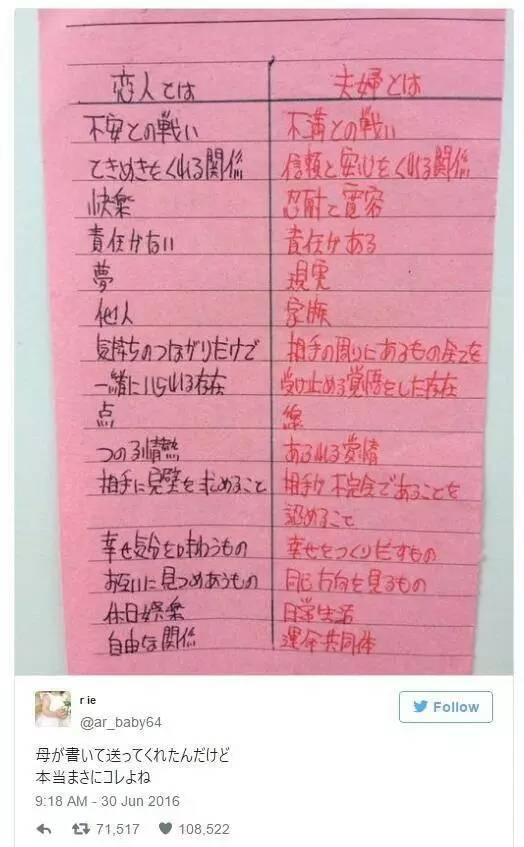 恋人とは 夫婦とは
不安との戦い 不満との戦い
ときめきをくれる関係 信頼と安心をくれる関係
快楽 忍耐と寛容
責任がない 責任がある
夢 現実
他人 家族
気持ちのつながりだけで 相手の周りにあるもの全てを
一緒にいられる存在 受け止める覚悟をした存在
点 線
つのる情熱 あふれる愛情
相手に完璧を求めること 相手が不完全であることを
認めること
幸せ気分を味わうもの 幸せをつくりだすもの
お互いに見つめあうもの 同じ方向を見るもの
休日娯楽 日常生活
自由な関係 運命共同体
r ie
@ar_baby64
Follow
母が書いて送ってくれたんだけど
本当まさにコレよね
9:18 AM - 30 Jun 2016
71,517 108,522